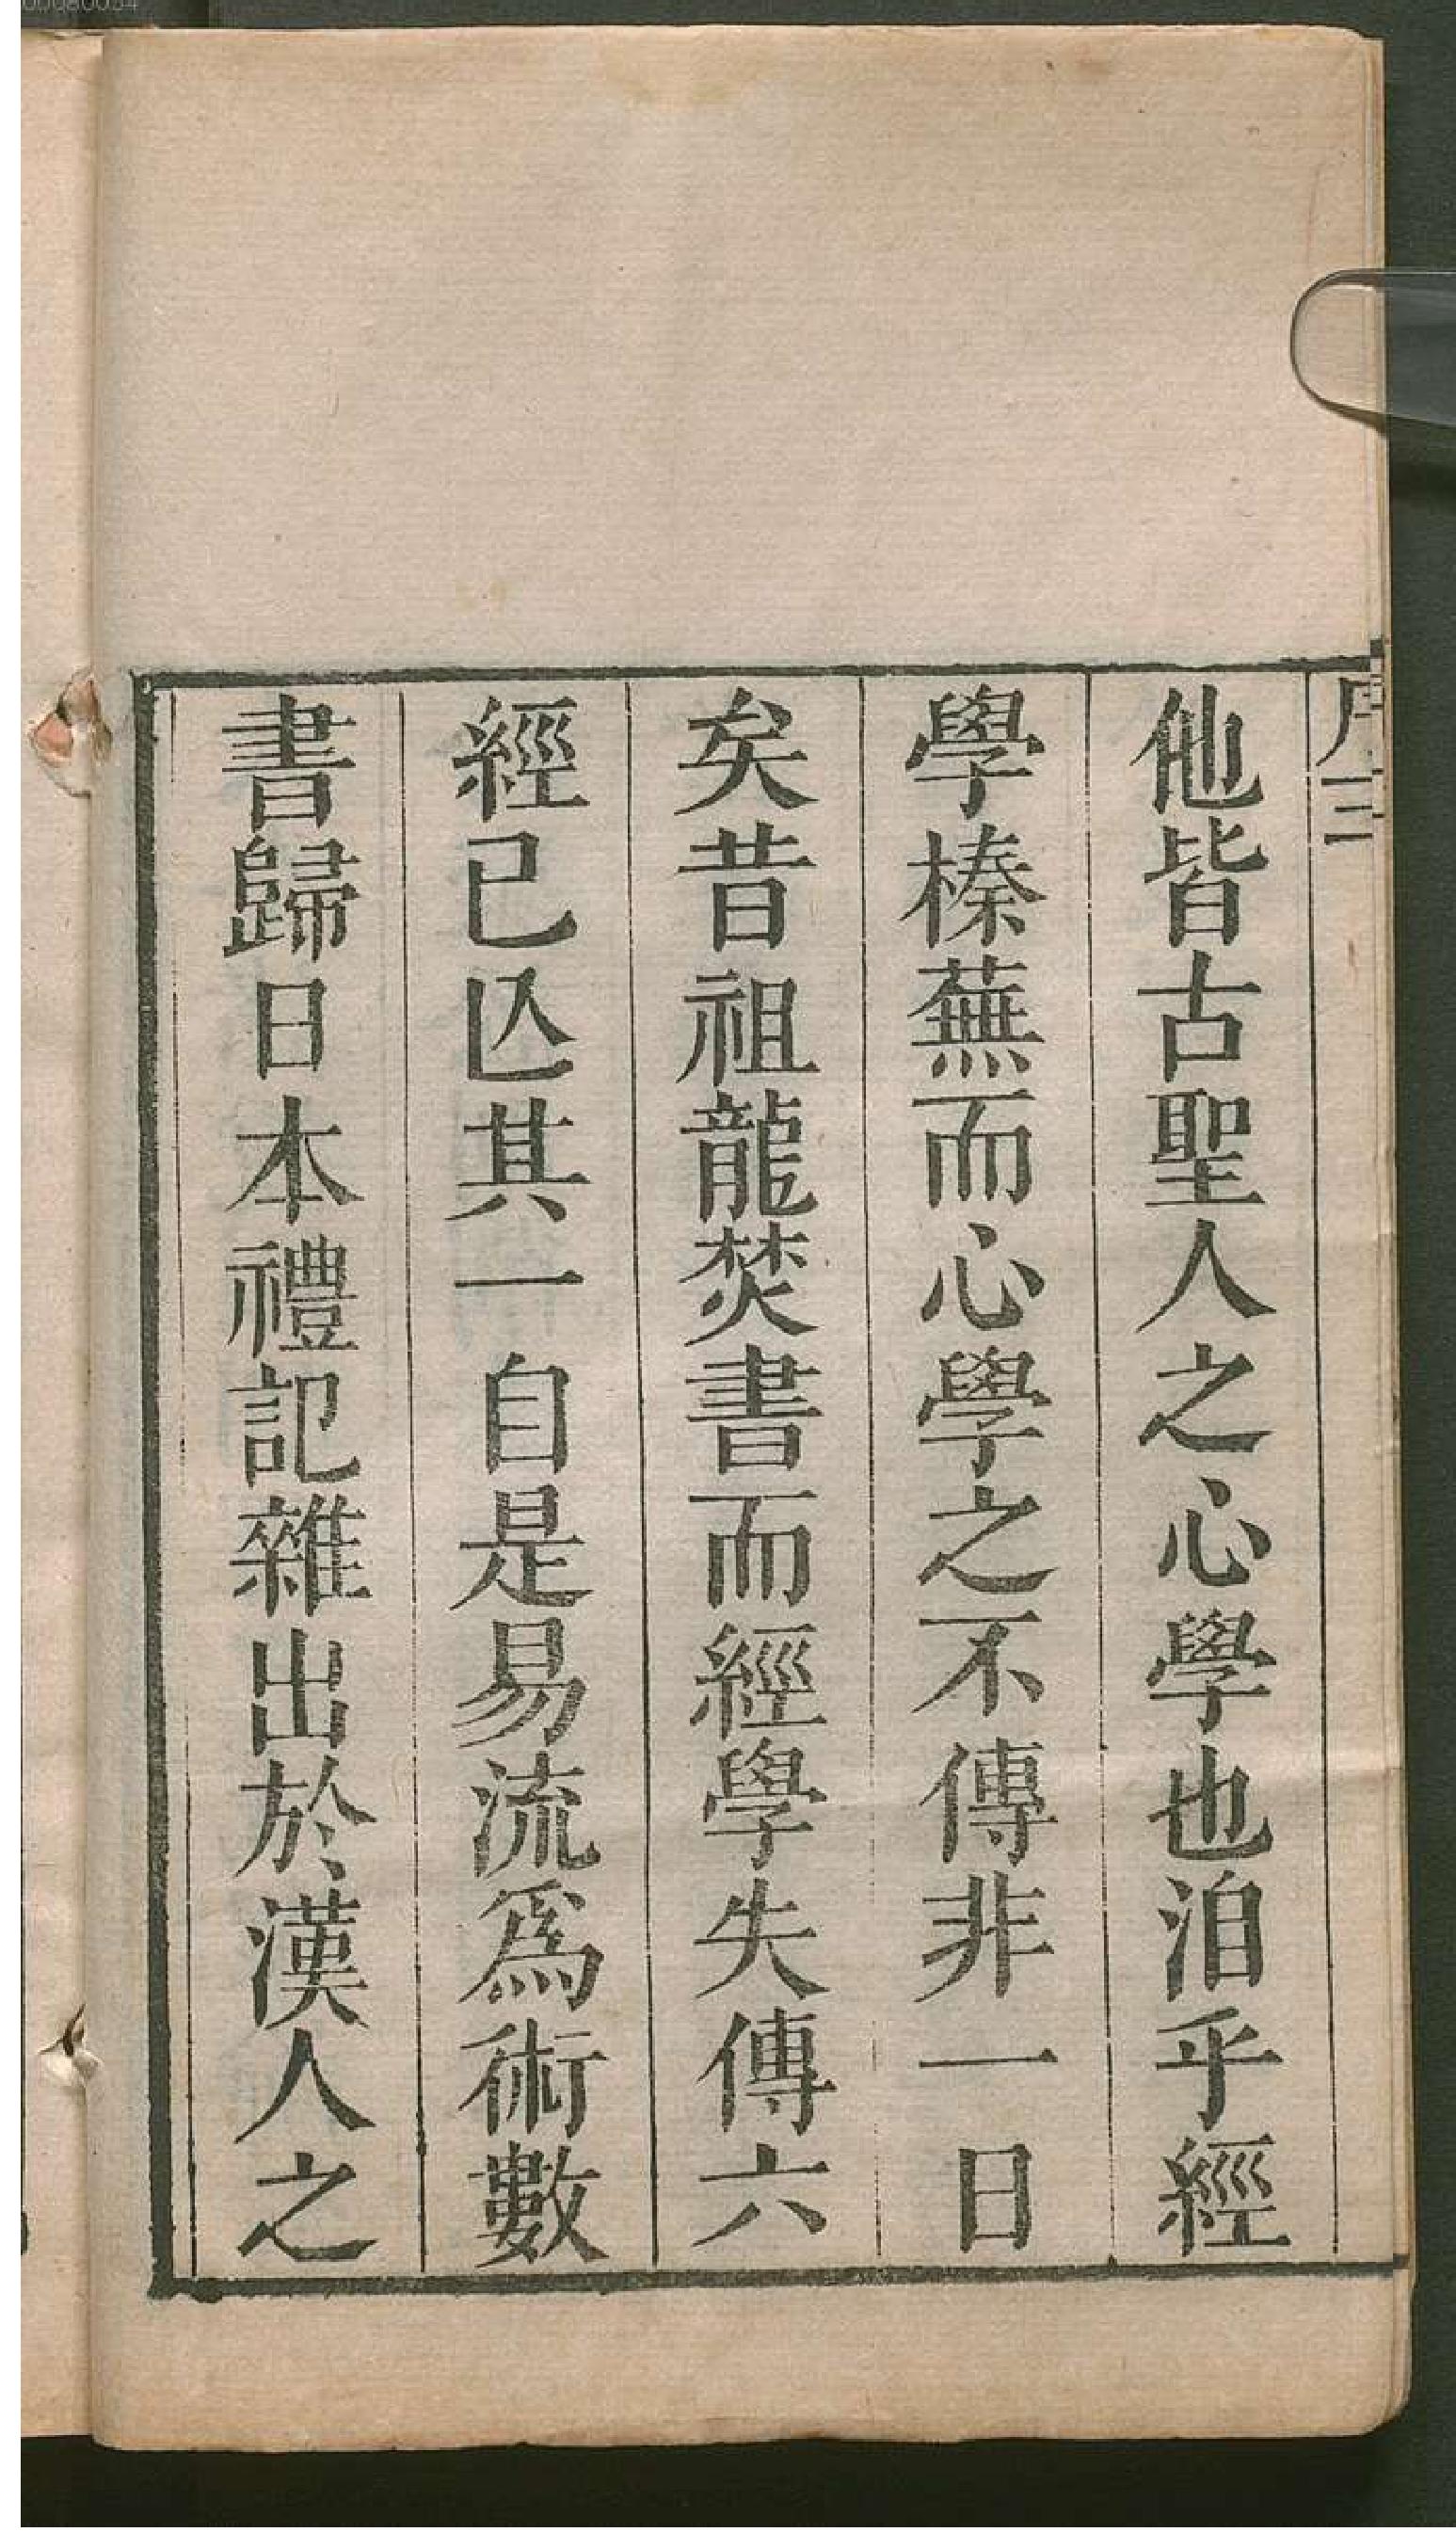 序 三
他皆古聖人之心學也洎乎經
學榛蕪而心學之不傳非一日
矣昔祖龍焚書而經學失傳六
經已亾其一自是易流為術數
書歸日本禮記雜出於漢人之